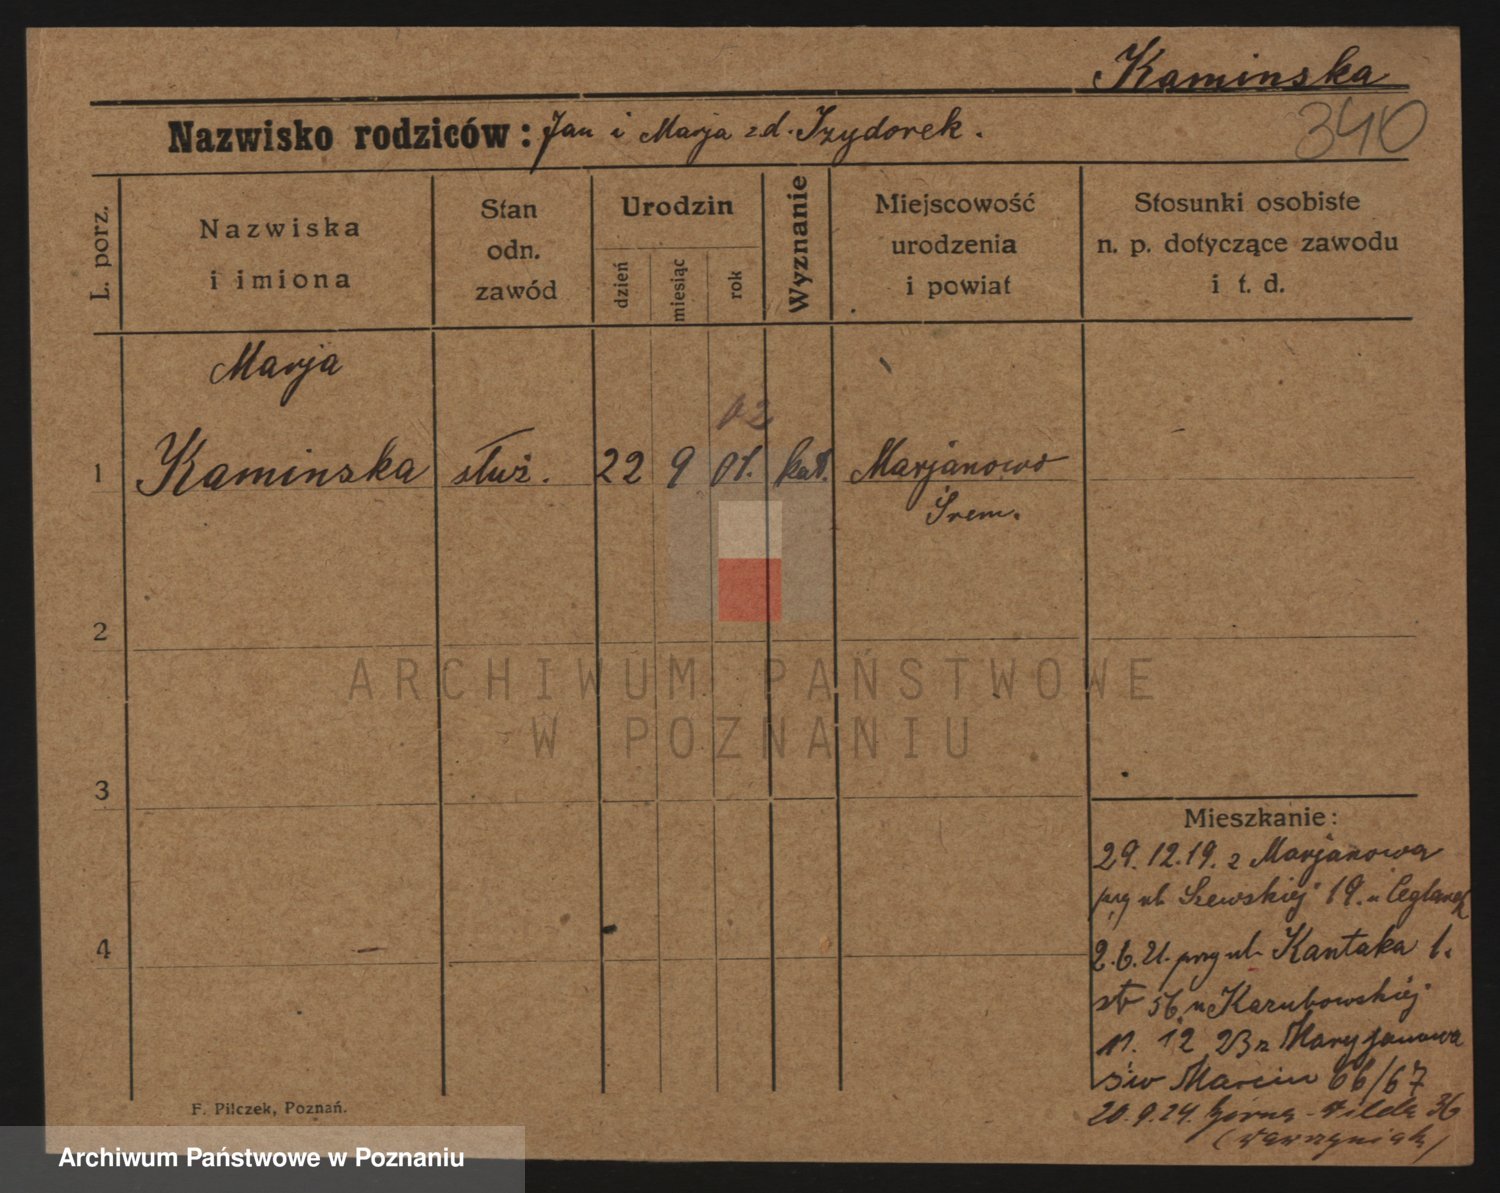 Kaminska
340
Nazwisko rodziców: Jan i Marja z d. Izydorek.
L. porz.
Nazwiska
i imiona
Stan
odn.
zawód
Urodzin
dzień
miesiąc
rok
Wyznanie
Miejscowość
urodzenia
i powiat
Stosunki osobiste
n. p. dotyczące zawodu
i t. d.
Marja
02
1 Kaminska służ. 22 9 01. kat. Marjanowo
Śrem.
2
3
4
Mieszkanie:
29.12.19. z Marjanowa
przy ul. Szewskiej 19. u
2.6.21. przy ul. Kantaka 1.
u
11. 12 23 z Maryjanowa
św Marcin 66/67
20.9.24. Górna-Wilda 36
F. Pilczek, Poznań.
ARCHIWUM PAŃSTWOWE
W POZNANIU
Archiwum Państwowe w Poznaniu